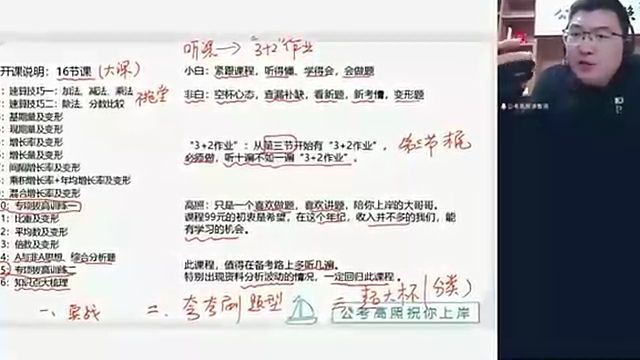 听课→"3+2"作业
开课说明：16节课（大课）
小白：紧跟课程，听得懂，学得会，会做题
：速算技巧一：加法、减法、乘法
非白：空杯心态，查漏补缺，看新题，新考情，变形题
：速算技巧二：除法、分数比较
：基期量及变形
：现期量及变形
"3+2作业"：从第三节开始有"3+2作业"，
：增长率及变形
必须做，听十遍不如一遍"3+2作业"。
：增长量及变形
：间隔增长率及变形
：乘积增长率+年均增长率及变形
：混合增长率及变形
0：专项拔高训练一
高照：只是一个喜欢做题，喜欢讲题，陪你上岸的大哥哥。
1：比重及变形
课程99元的初衷是希望，在这个年纪，收入并不多的我们，能
2：平均数及变形
有学习的机会。
3：倍数及变形
4：A与非A思想、综合分析题
此课程，值得在备考路上多听几遍。
5：专项拔高训练二
特别出现资料分析波动的情况，一定回归此课程。
6：知识点大梳理
一、实战
二、夸夸刷题型
大杯（分类）
公考高照祝你上岸